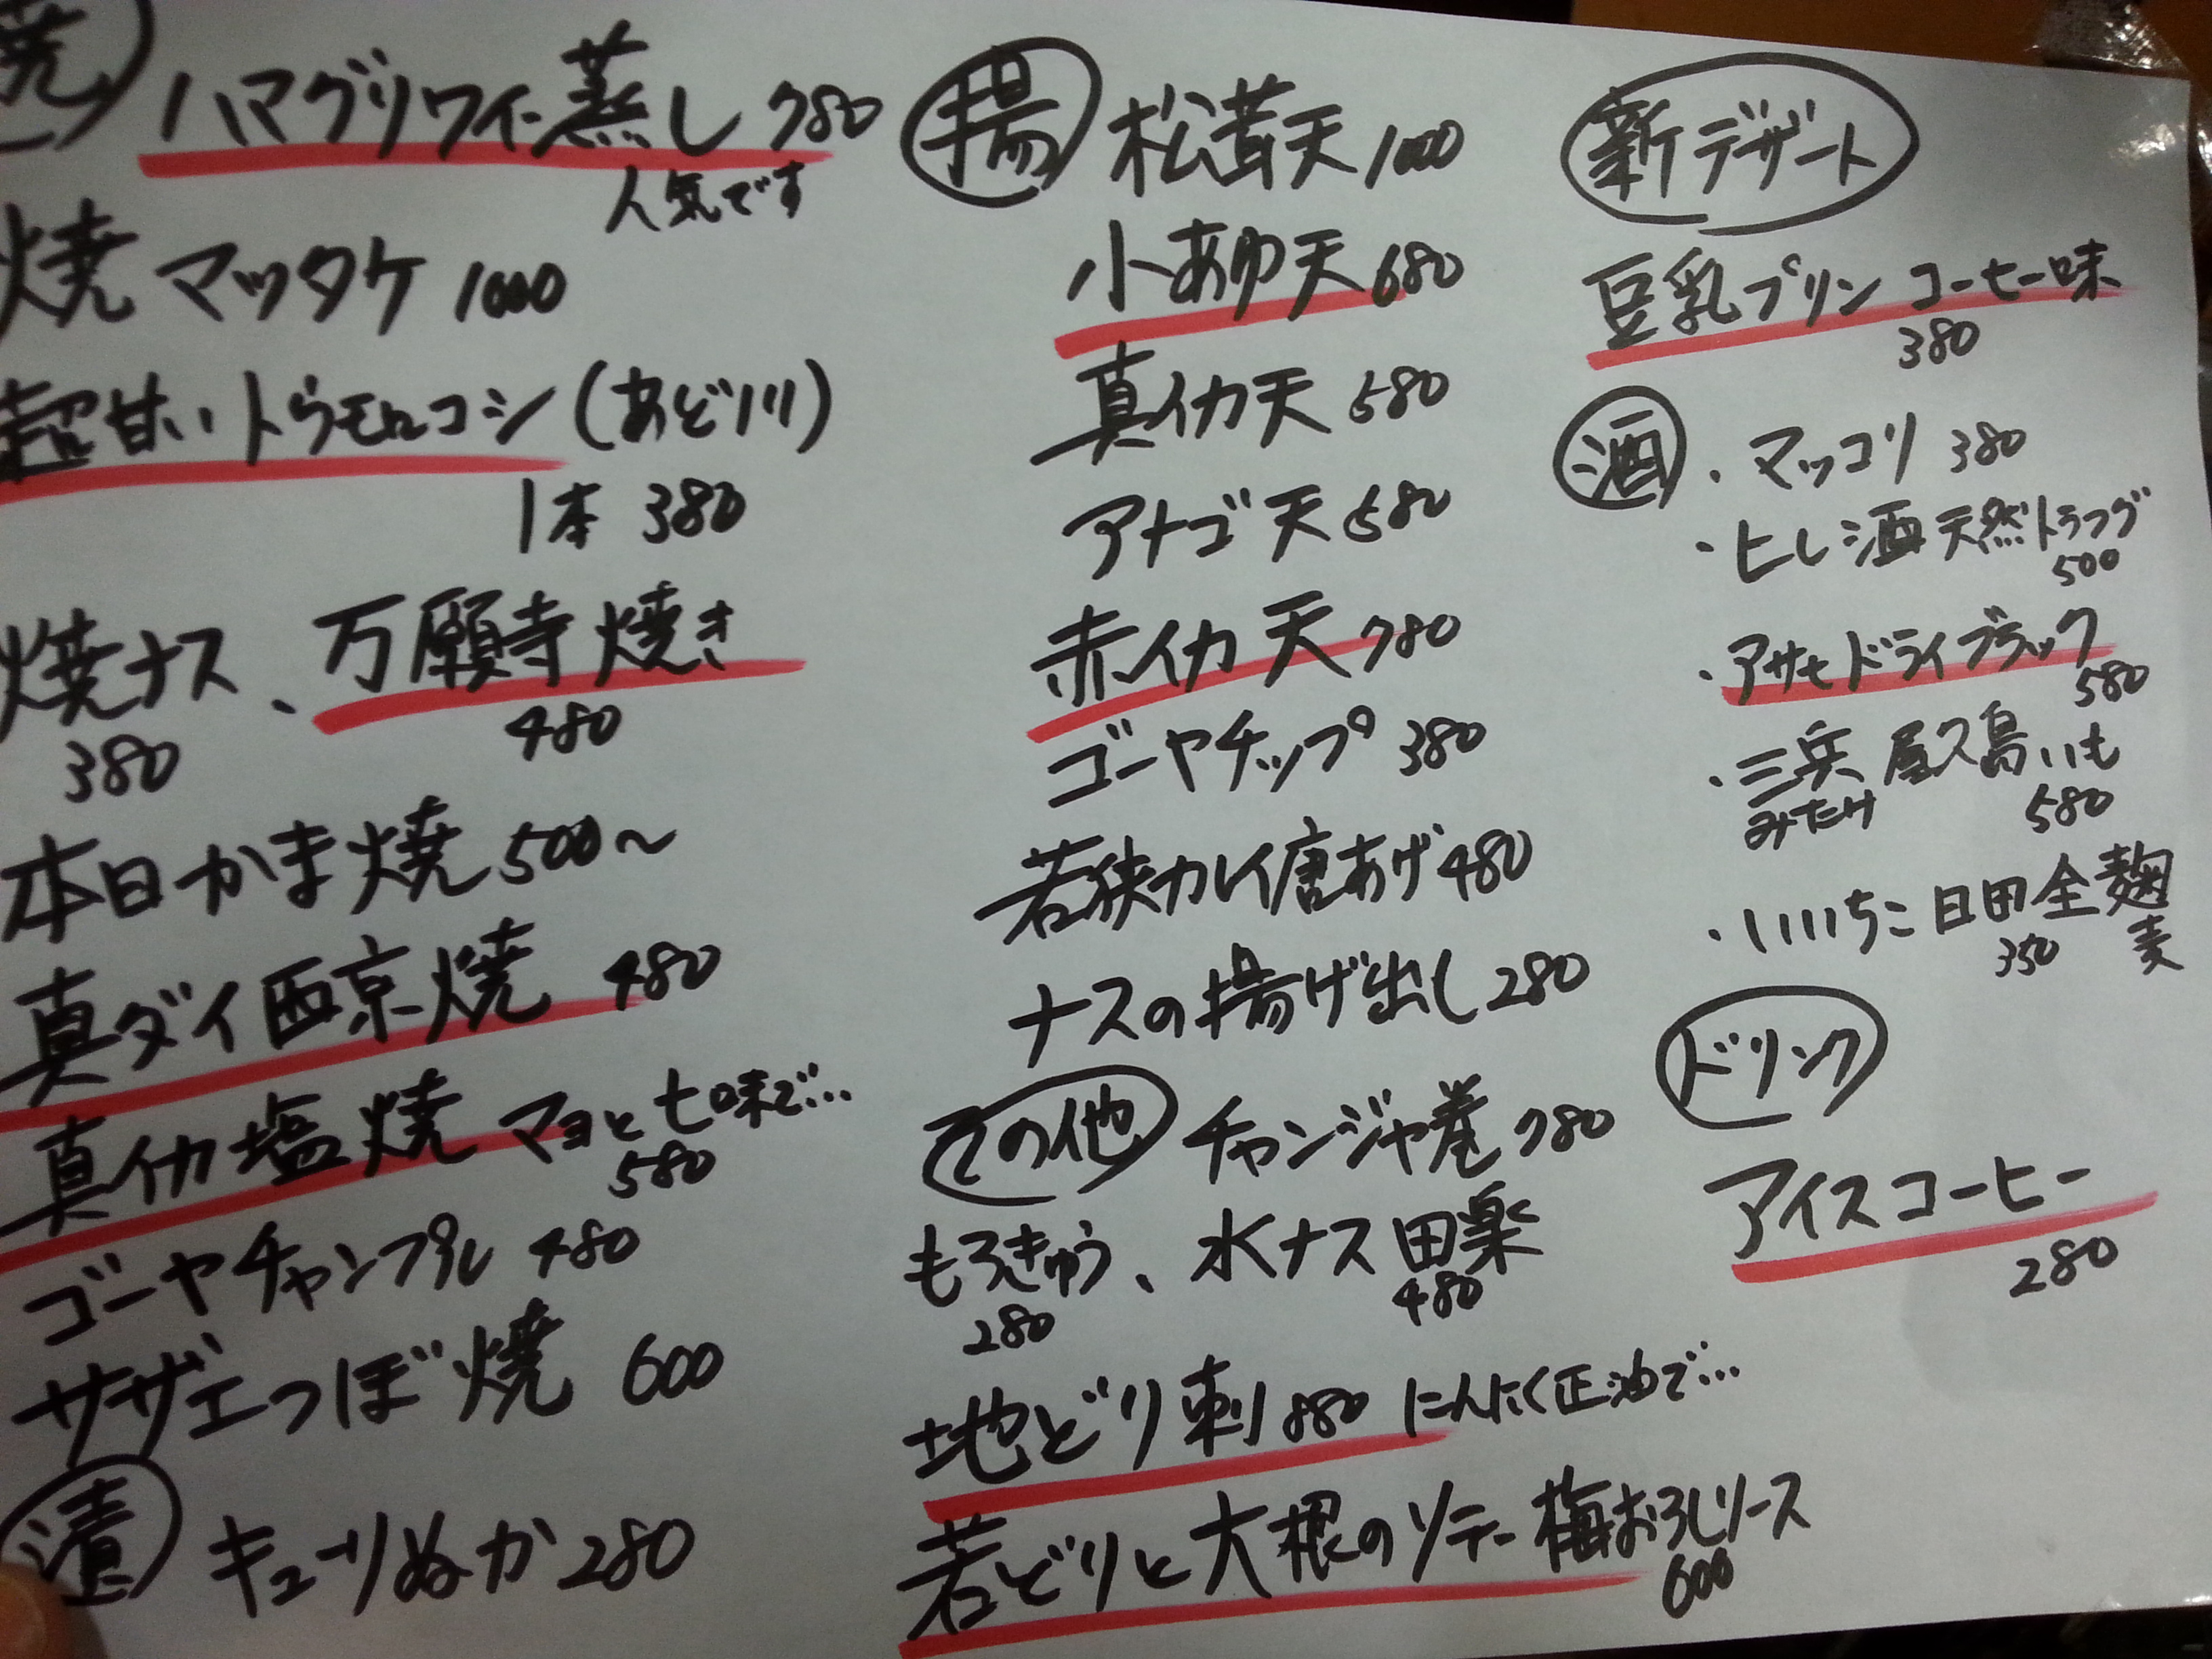 焼
ハマグリワイン蒸し 780
人気です
焼マツタケ 1000
超甘いトウモロコシ(あど川)
1本 380
焼ナス、万願寺焼き
380 480
本日かま焼 500〜
真ダイ西京焼 480
真イカ塩焼 マヨと七味で…
580
ゴーヤチャンプル 480
サザエつぼ焼 600
漬 キューリぬか 280
揚 松茸天 1000
小あゆ天 680
真イカ天 580
アナゴ天 580
赤イカ天 780
ゴーヤチップ 380
若狭カレイ唐あげ 480
ナスの揚げ出し 280
その他 チャンジャ巻 780
もろきゅう、水ナス田楽
280 480
地どり刺 880 にんにく正油で…
若どりと大根のソテー梅おろしソース
600
新デザート
豆乳プリンコーヒー味
380
酒 ・マッコリ 380
・ヒレ酒天然トラフグ
500
・アサヒドライブラック
580
・三岳 屋久島いも
みたけ 580
・いいちこ日田全麹
350 麦
ドリンク
アイスコーヒー
280